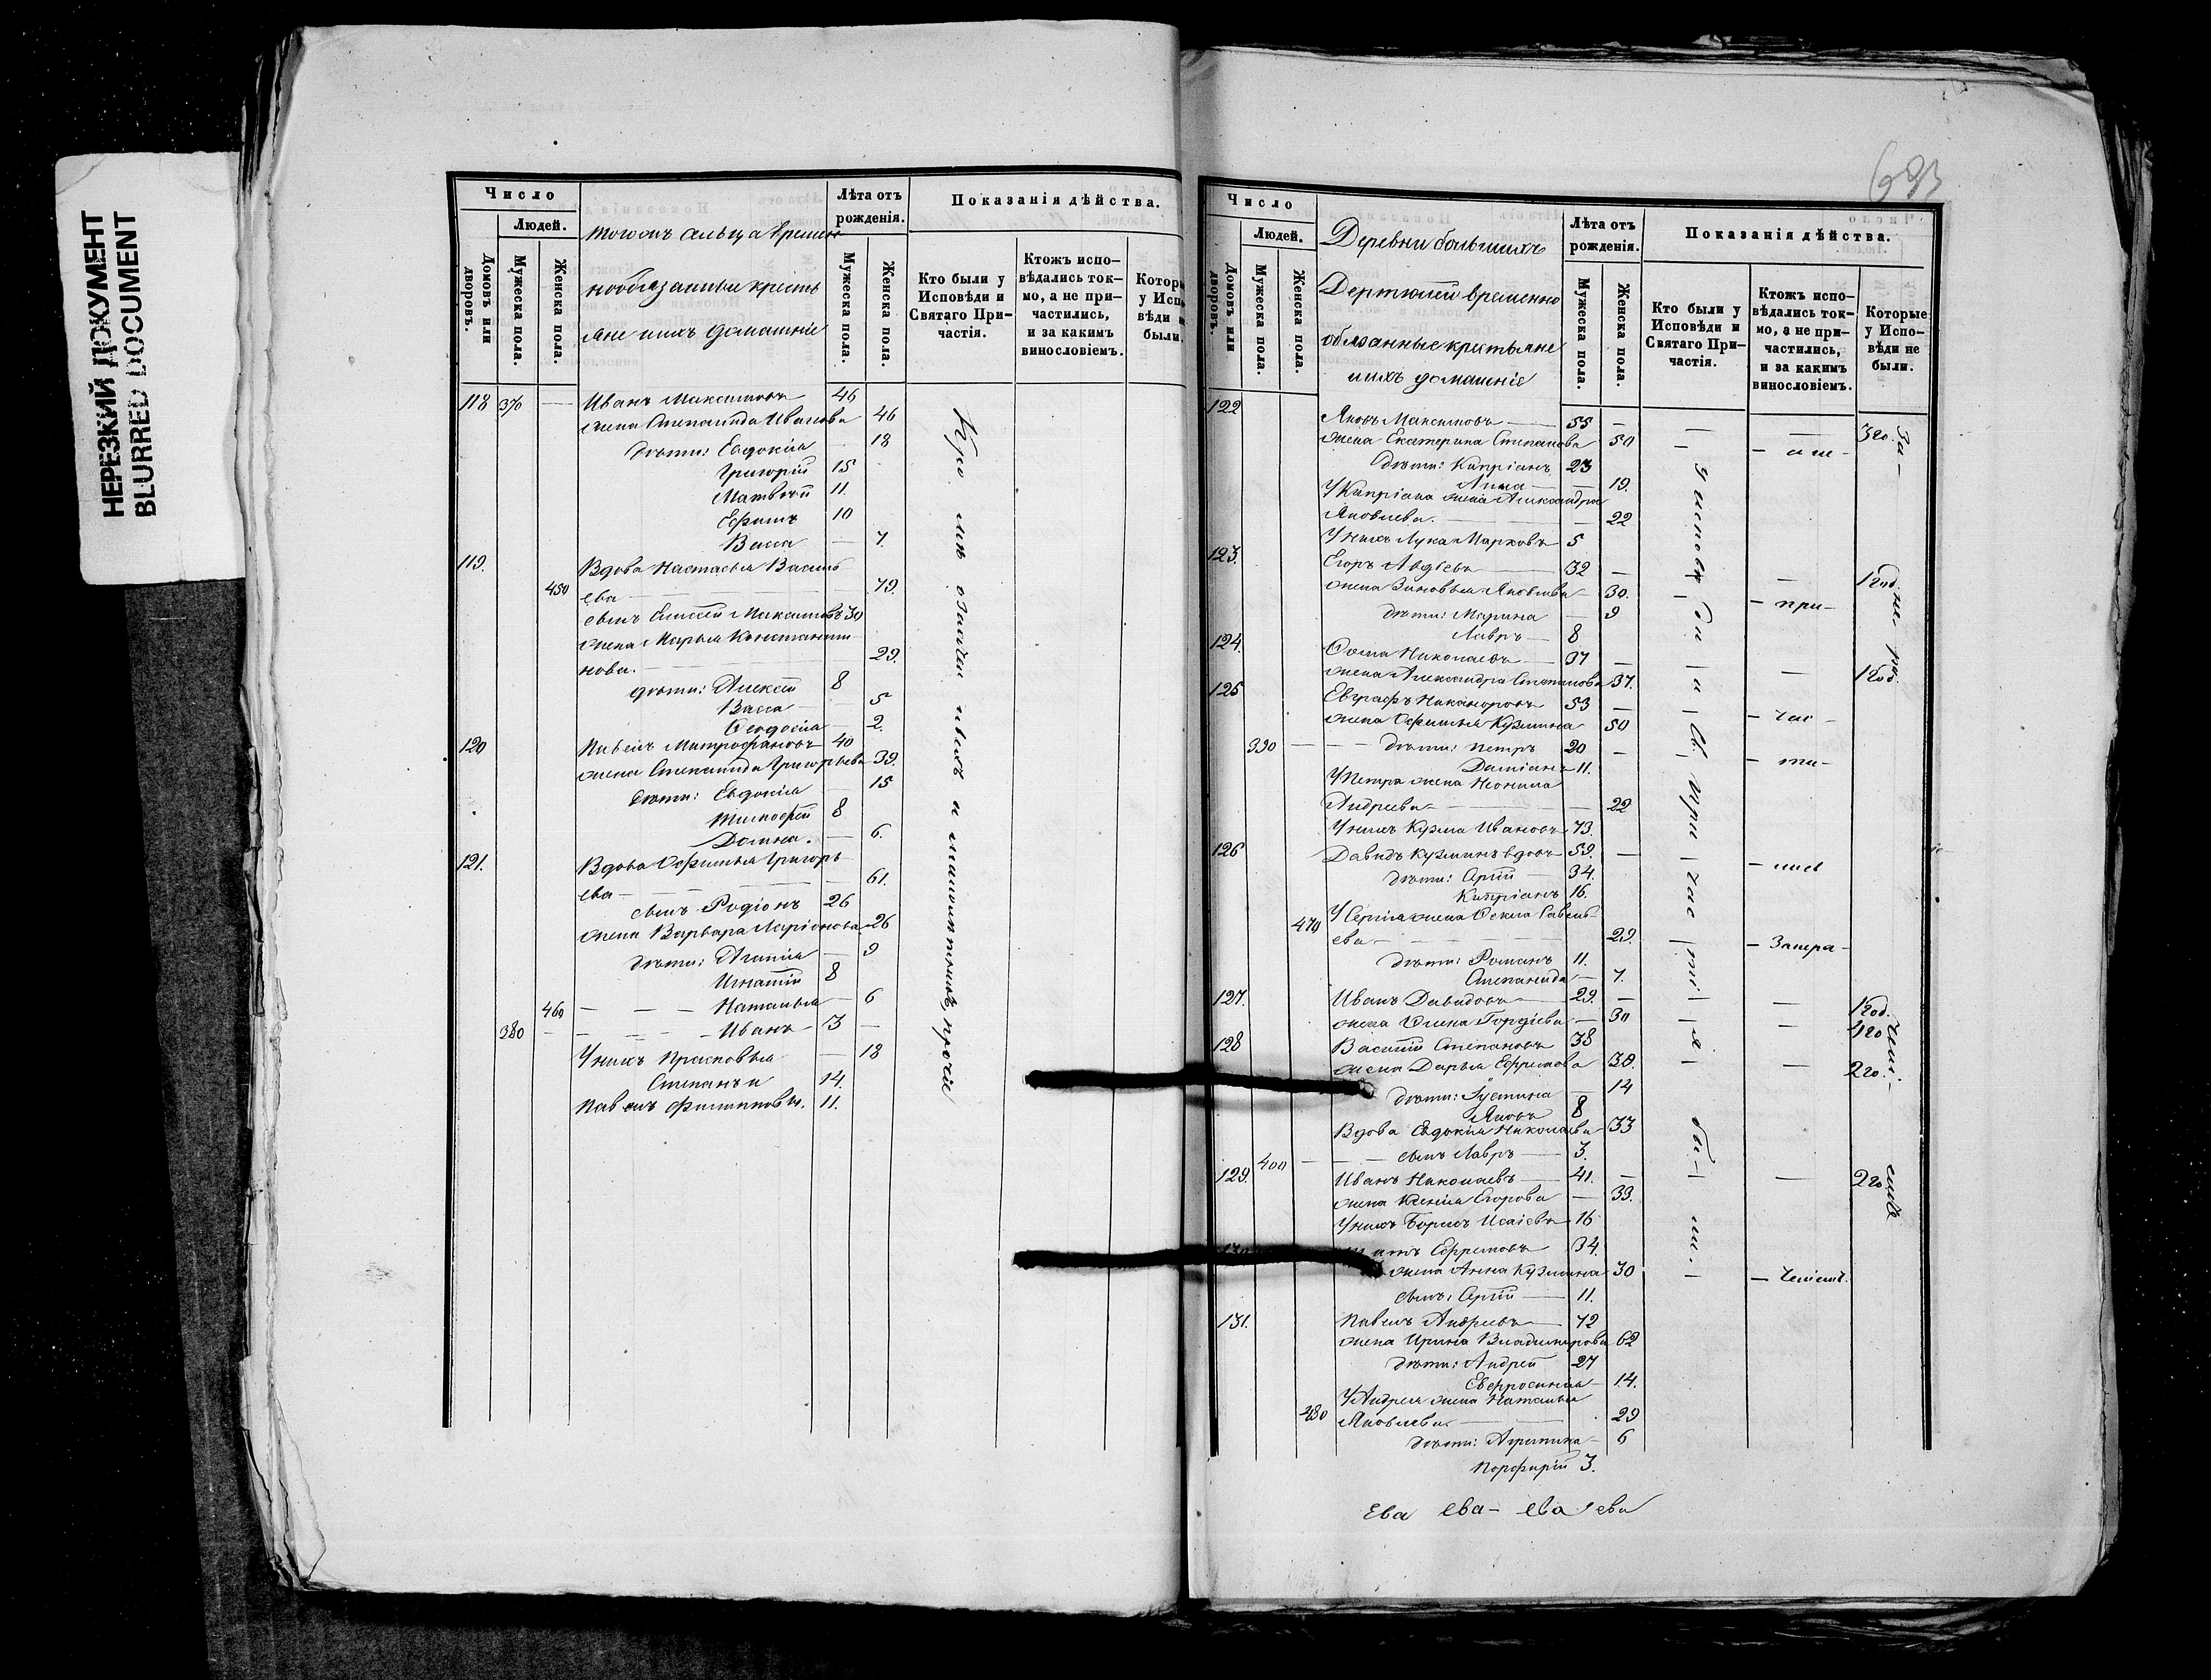 НЕРЕЗКИЙ ДОКУМЕНТ
BLURRED DOCUMENT
Число
Людей.
Домовъ или дворовъ.
Мужеска пола.
Женска пола.
тогожъ сельца времен
нообязанные кресть
яне и ихъ домашніе
Лѣта отъ рожденія.
Мужеска пола.
Женска пола.
Показанія дѣйства.
Кто были у Исповѣди и Святаго При-частія.
Ктожъ испо-вѣдались ток-мо, а не при-частились, и за какимъ винословіемъ.
118 370 — Иванъ Максимовъ 46
жена Степанида Иванова 46
дѣти: Евдокія 18
Григорій 15
Матвѣй 11.
Ефимъ 10
Васса — 7.
119. Вдова Настасья Василь
450 ева — 79.
сынъ Елисей Максимовъ 30
жена Марья Константи-
нова. — 29.
дѣти: Алексѣй 8
Васса — 5
Ѳеодосія — 2.
120 Павелъ Митрофановъ 40
жена Степанида Григорьева 39.
дѣти: Евдокія — 15
Тимофѣй 8
Домна. — 6.
121. Вдова Ефимья Григорь-
ева — 61.
сынъ Родіонъ 26
жена Варвара Ларіонова 26
дѣти: Агапія — 9
Игнатій 8
460 — Наталья — 6
380 — Иванъ 3 —
У нихъ Прасковья — 18
Степанъ и 14.
Павелъ Филипповы. 11.
683
Число
Людей.
Домовъ или дворовъ.
Мужеска пола.
Женска пола.
Деревни большихъ
Дертюлей временно
обязанные крестьяне
и ихъ домашніе
Лѣта отъ рожденія.
Мужеска пола.
Женска пола.
Показанія дѣйства.
Кто были у Исповѣди и Святаго При-частія.
Ктожъ испо-вѣдались ток-мо, а не при-частились, и за какимъ винословіемъ.
Которые у Испо-вѣди не были.
122 Яковъ Максимовъ — 55 — 3 го.
жена Екатерина Степанова 50
дѣти: Кипріанъ 23
Анна — 19.
У Кипріана жена Александра
Яковлева. — 22
У нихъ Лука Марковъ 5
123. Егоръ Авдѣевъ — 32 — 1 год.
жена Зиновья Яковлева — 30. — при—
дѣти: Марина — 9
Лавръ — 8
124. Ѳома Николаевъ — 37 — 1 год.
жена Александра Степанова 37.
125 Евграфъ Никаноровъ 53 —
жена Ефимья Кузмина 50 — час —
390 — дѣти: Петръ 20 —
Даміанъ 11. — ти—
У Петра жена Неонила
Андреева — 22
У нихъ Кузма Ивановъ 73.
126 Давидъ Кузминъ вдовъ 59. —
дѣти: Сергій 34.
Кипріанъ 16.
У Сергія жена Ѳекла Савель-
470 ева — 29.
дѣти: Романъ 11.
Степанида — 7.
127. Иванъ Давидовъ — 29. — 1 год.
жена Елена Гордѣева — 30
128 Василій Степановъ 38
жена Дарья Ефремова 38.
дѣти: Іустина — 14
Яковъ 8
Вдова Евдокія Николаева 33
400 — сынъ Лавръ — 3.
129. Иванъ Николаевъ — 41. — 2 го
жена Ксенія Егорова — 39.
У нихъ Борисъ Исаіевъ 16
Ефремовъ 34.
жена Анна Кузмина 30
сынъ: Сергій — 11.
131. Павелъ Андреевъ — 72
жена Ирина Владимирова 62
дѣти: Андрей 27
Евфросинья — 14.
У Андрея жена Наталья
480 Яковлева — 29
дѣти: Агрипина — 6
Порфирій 3.
Ева ева— ева ева